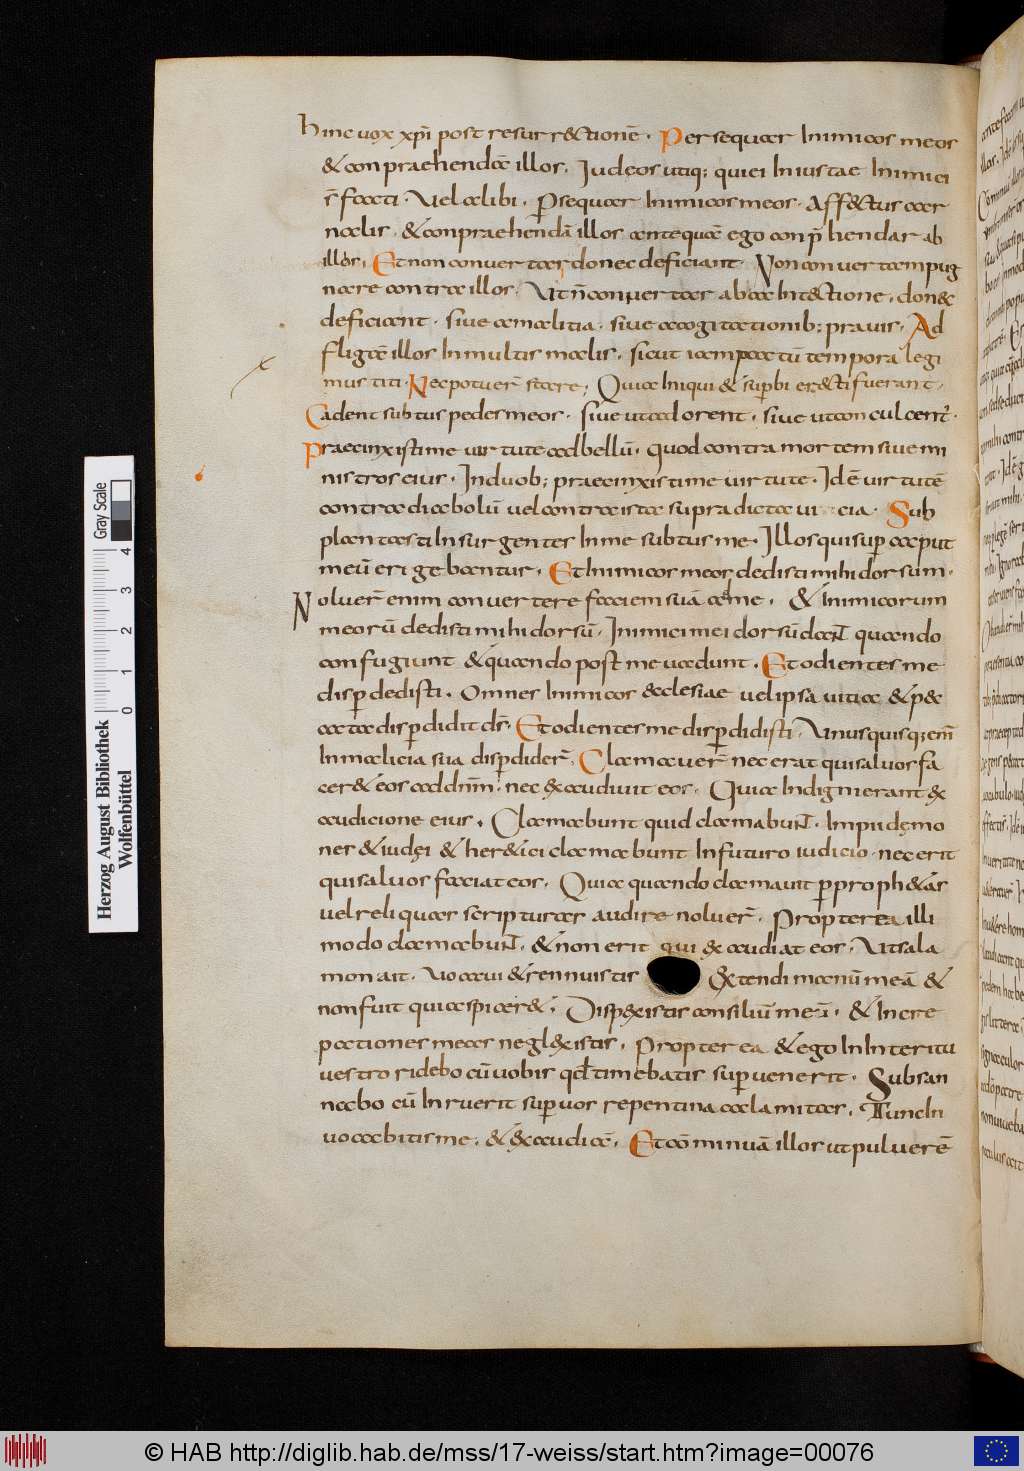 hinc uox xp̄i post resurrectionē. Persequar Inimicos meos
& conpraehendā illos. Iudeos utiq; qui ei Iniustae Inimici
s̄ facti. Vel alibi. Psequar Inimicos meos. Affectus car
nalis. & conpraehendā illos antequā ego conp̄hendar ab
illis. Et non conuertar donec deficiant. Non conuertam pug
nare contra illos. Vt n̄ conuertar ab ac Intectione. donec
deficiant. siue a malitia. siue a cogitationib; prauis. Ad
fligā illos In multis malis. sicut iam peractū tempora legi
mus titi. Nec potuer̄ stare. Quia Iniqui & supbi erecti fuerant.
Cadent subtus pedes meos. siue ut adorent. siue ut conculcent̄.
Praecinxisti me uirtute ad bellū. quod contra mortem siue mi
nistros eius. In duob; praecinxisti me uirtute. Idē uirtutē
contra diabolū uel contra ista supradicta ui cia. Sub
plantasti Insurgentes In me subtus me. Illos qui sup caput
meū erigebantur. Et Inimicos meos dedisti mihi dorsum.
Noluer̄ enim conuertere faciem suā ad me. & Inimicorum
meorū dedisti mihi dorsū. Inimici mei dorsū dant quando
confugiunt & quando post me uadunt. Et odientes me
disp dedisti. Omnes Inimicos ecclesiae uel ipsa uitia & pec
cata dispdidit ds̄. Et odientes me dispdidisti. Vnusquisq; em̄
In malicia sua dispdider̄. Clamauer̄ nec erat qui saluos fa
cer& eos ad dn̄m. nec exaudiuit eos. Quia Indigni erant ex
audicione eius. Clamabunt quid clamabunt. Impii demo
nes & iudęi & heretici clamabunt In futuro iudicio. nec erit
qui saluos faciat eos. Quia quando clamauit p prophetas
uel reliquas scripturas audire noluer̄. Propterea illi
modo clamabunt. & non erit qui exaudiat eos. Vt sala
mon ait. Vocaui & rennuistis extendi manū meā &
non fuit qui aspicer&. Dispexistis consiliū meū. & Incre
pationes meas neglexistis. Propterea & ego In Interitu
uestro ridebo cū uobis qđ timebatis supuenerit. Subsan
nabo cū Inruerit sup uos repentina calamitas. Tunc In
uocabitis me. & exaudiā. Et cōminuā illos ut puluerē
Herzog August Bibliothek
Wolfenbüttel
Gray Scale
0 1 2 3 4
© HAB http://diglib.hab.de/mss/17-weiss/start.htm?image=00076